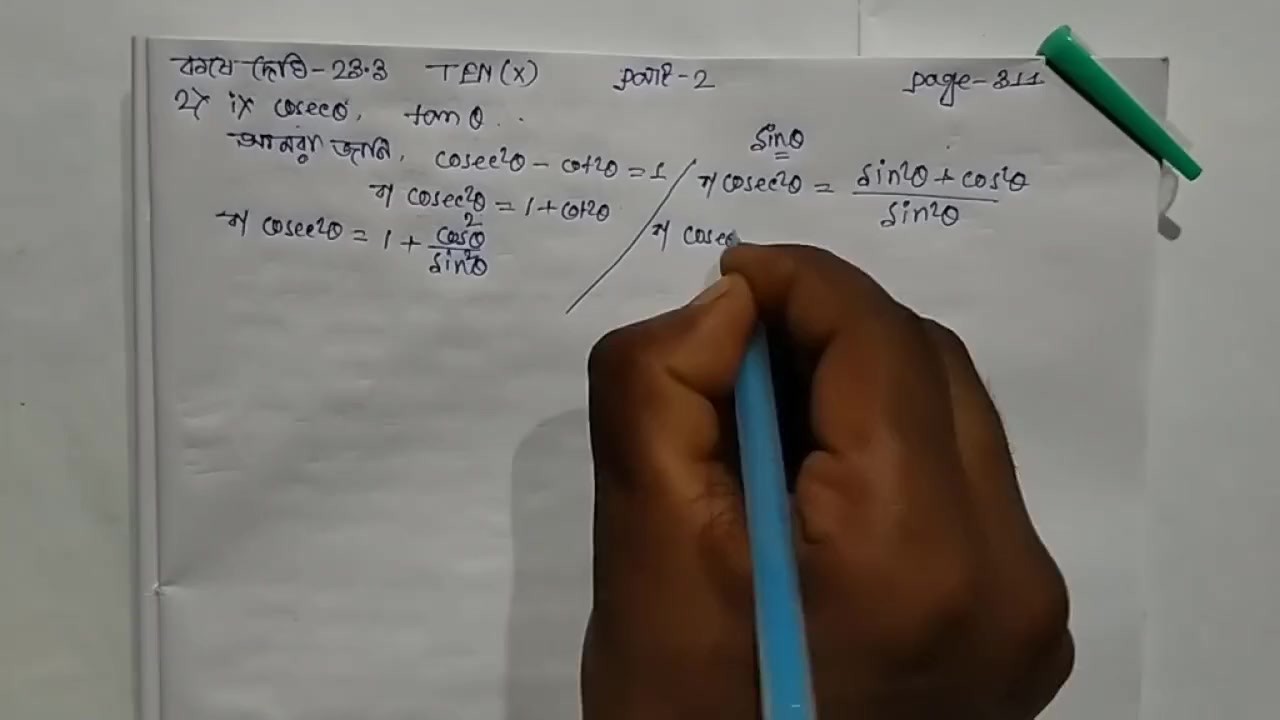 কষে দেখি-23.3 TEN(X) part-2 page-311
2) i) cosecθ, tanθ
আমরা জানি, cosec²θ - cot²θ = 1
বা cosec²θ = 1 + cot²θ
বা cosec²θ = 1 + cos²θ/sin²θ
sinθ
বা cosec²θ = (sin²θ + cos²θ)/sin²θ
বা cosec